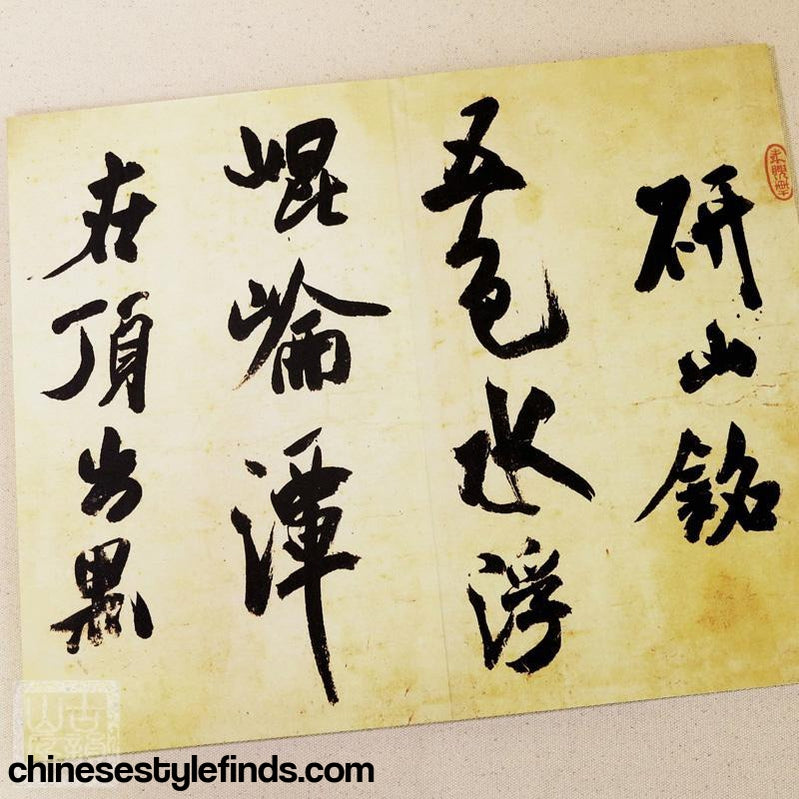 研山銘
五色水浮
崐崘潭
在頂出黑
chinesestylefinds.com